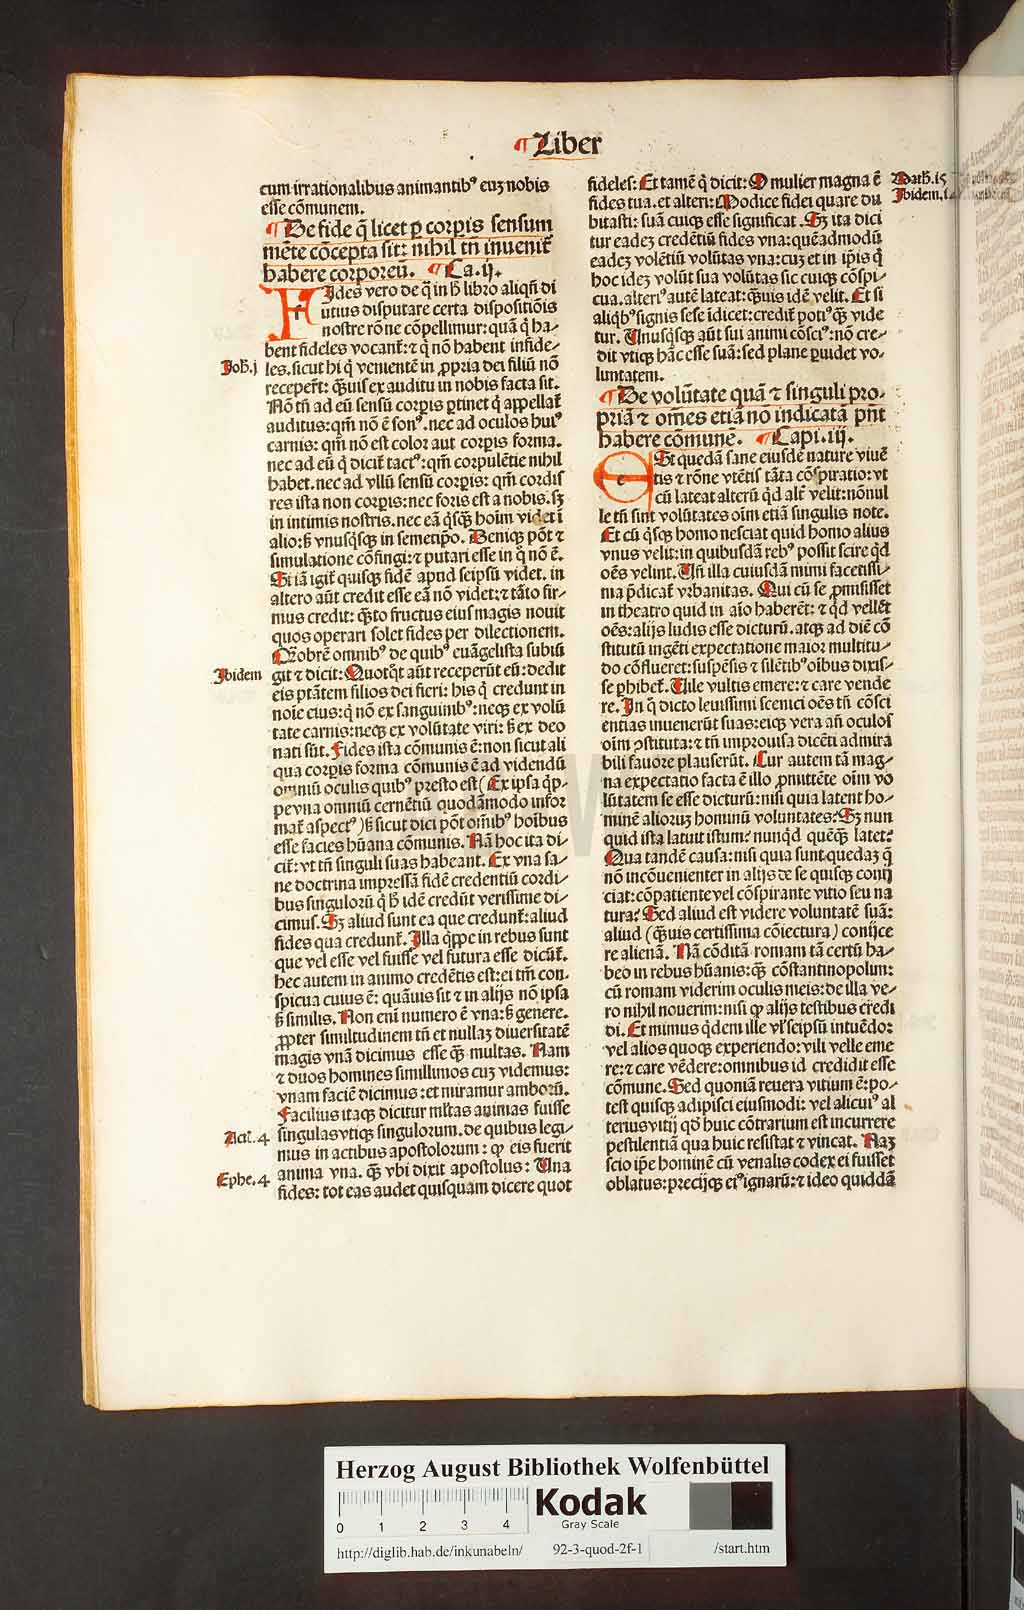 ¶Liber
cum irrationalibus animantibꝰ euꝫ nobis
esse cõmunem.
¶De fide q̃ licet ꝑ corpis sensum
mẽte cõcepta sit: nihil tñ inuenit᷑
habere corporeũ. ¶Ca.ij.
FIdes vero de q̃ in h̃ libro aliqñ di
utius disputare certa dispositiõis
nostre rõne cõpellimur: quã q̃ ha⸗
bent fideles vocant᷑: ⁊ q̃ nõ habent infide⸗
Joh̃.j
les. sicut hi q̃ venientẽ in ꝓpria dei filiũ nõ
receper̃t: q̃uis ex auditu in nobis facta sit.
Nõ tñ ad eũ sensũ corpis ꝑtinet q̃ appellat᷑
auditus: qm̃ nõ ẽ sonꝰ. nec ad oculos huiꝰ
carnis: qm̃ nõ est color aut corpis forma.
nec ad eũ q̃ dicit᷑ tactꝰ: qm̃ corpulẽtie nihil
habet. nec ad vllũ sensũ corpis: qm̃ cordis
res ista non corpis: nec foris est a nobis. sꝫ
in intimis nostris. nec eã q̃sqꝫ hoĩm videt ĩ
alio: s̃ vnusq̃sqꝫ in semetip̃o. Deniqꝫ põt ⁊
simulatione cõfingi: ⁊ putari esse in q̃ nõ ẽ.
Si iã igit᷑ quisqꝫ fidẽ apud seipsũ videt. in
altero aũt credit esse eã nõ videt: ⁊ tãto fir⸗
mus credit: q̃to fructus eius magis nouit
quos operari solet fides per dilectionem.
Q̃obrẽ omnibꝰ de quibꝰ euãgelista subiũ
Jbidem
git ⁊ dicit: Quotq̃t aũt receperũt eũ: dedit
eis ptãtem filios dei fieri: his q̃ credunt in
noĩe eius: q̃ nõ ex sanguinibꝰ: neqꝫ ex volũ
tate carnis: neqꝫ ex volũtate viri: s̃ ex deo
nati sũt. Fides ista cõmunis ẽ: non sicut ali
qua corpis forma cõmunis ẽ ad videndũ
omniũ oculis quibꝰ presto est (Ex ipsa q̃p⸗
pe vna omniũ cernẽtiũ quodãmodo infor
mat᷑ aspectꝰ) s̃ sicut dici põt om̃ibꝰ hoĩbus
esse facies hũana cõmunis. Nã hoc ita di⸗
cit᷑: vt tñ singuli suas habeant. Ex vna sa⸗
ne doctrina impressã fidẽ credentiũ cordi⸗
bus singulorũ q̃ h̃ idẽ credũt verissime di⸗
cimus. Sꝫ aliud sunt ea que credunt᷑: aliud
fides qua credunt᷑. Illa q̃ppe in rebus sunt
que vel esse vel fuisse vel futura esse dicũt᷑.
hec autem in animo credẽtis est: ei tm̃ con⸗
spicua cuius ẽ: quãuis sit ⁊ in alijs nõ ipsa
s̃ similis. Non enĩ numero ẽ vna: s̃ genere.
ꝓpter similitudinem tñ et nullaꝫ diuersitatẽ
magis vnã dicimus esse q̃ꝫ multas. Nam
⁊ duos homines simillimos cuꝫ videmus:
vnam faciẽ dicimus: et miramur amborũ.
Facilius itaqꝫ dicitur ml̃tas animas fuisse
Act᷑.4
singulas vtiqꝫ singulorum. de quibus legi⸗
mus in actibus apostolorum: ꝙ eis fuerit
Ephe.4
anima vna. q̃ꝫ vbi dixit apostolus: Una
fides: tot eas audet quisquam dicere quot
fideles: Et tamẽ q̃ dicit: O mulier magna ẽ
Math̃.15
fides tua. et alteri: Modice fidei quare du
Jbidem.14
bitasti: suã cuiqꝫ esse significat. Sꝫ ita dici
tur eadeꝫ credẽtiũ fides vna: quẽadmodũ
eadeꝫ volẽtiũ volũtas vna: cuꝫ et in ip̃is q̃
hoc ideꝫ volũt sua volũtas sic cuiqꝫ cõspi⸗
cua. alteriꝰ autẽ lateat: q̃uis idẽ velit. Et si
aliqbꝰ signis sese ĩdicet: credit᷑ potiꝰ q̃ꝫ vide
tur. Unusq̃sqꝫ aũt sui animi cõsciꝰ: nõ cre⸗
dit vtiqꝫ hãc esse suã: sed plane ꝑuidet vo⸗
luntatem.
¶De volũtate quã ⁊ singuli pro⸗
priã ⁊ om̃es etiã nõ indicatã pñt
habere cõmunẽ. ¶Capi.iij.
ESt quedã sane eiusdẽ nature viuẽ
tis ⁊ rõne vtẽtis tãta cõspiratio: vt
cũ lateat alterũ q̃d alt᷑ velit: nõnul
le tñ sint volũtates oĩm etiã singulis note.
Et cũ q̃sqꝫ homo nesciat quid homo alius
vnus velit: in quibusdã rebꝰ possit scire q̃d
oẽs velint. Uñ illa cuiusdã mimi facetissi⸗
ma p̃dicat᷑ vrbanitas. Qui cũ se ꝓmisisset
in theatro quid in aĩo haberẽt: ⁊ q̃d vellẽt
oẽs: alijs ludis esse dicturũ. atqꝫ ad diẽ cõ
stitutũ ingẽti expectatione maior multitu⸗
do cõflueret: suspẽsis ⁊ silẽtibꝰ oĩbus dixis⸗
se ꝑhibet᷑. Uile vultis emere: ⁊ care vende
re. In q̃ dicto leuissimi scenici oẽs tñ cõsci
entias inuenerũt suas: eiqꝫ vera añ oculos
oĩm ꝯstituta: ⁊ tñ improuisa dicẽti admira
bili fauore plauserũt. Cur autem tã mag⸗
na expectatio facta ẽ illo ꝓmittẽte oĩm vo
lũtatem se esse dicturũ: nisi quia latent ho⸗
minẽ alioruꝫ hominũ voluntates? Sꝫ nun
quid ista latuit istum? nunq̃d quẽq̃ꝫ latet?
Qua tandẽ causa: nisi quia sunt quedaꝫ q̃
nõ incõuenienter in alijs de se quisqꝫ conij
ciat: cõpatiente vel cõspirante vitio seu na
tura? Sed aliud est videre voluntatẽ suã:
aliud (q̃uis certissima cõiectura) conijce
re alienã. Nã cõditã romam tã certũ ha⸗
beo in rebus hũanis: q̃ꝫ cõstantinopolim:
cũ romam viderim oculis meis: de illa ve⸗
ro nihil nouerim: nisi ꝙ alijs testibus credi
di. Et mimus q̃dem ille vl̃ seipsũ intuẽdo:
vel alios quoqꝫ experiendo: vili velle eme
re: ⁊ care vẽdere: omnibus id credidit esse
cõmune. Sed quoniã reuera vitium ẽ: po⸗
test quisqꝫ adipisci eiusmodi: vel alicuiꝰ al
terius vitij qd̃ huic cõtrarium est incurrere
pestilentiã qua huic resistat ⁊ vincat. Naꝫ
scio ip̃e hominẽ cũ venalis codex ei fuisset
oblatus: precijqꝫ eiꝰ ignarũ: ⁊ ideo quiddã
Herzog August Bibliothek Wolfenbüttel
0 1 2 3 4
Kodak
Gray Scale
http://diglib.hab.de/inkunabeln/ 92-3-quod-2f-1 /start.htm